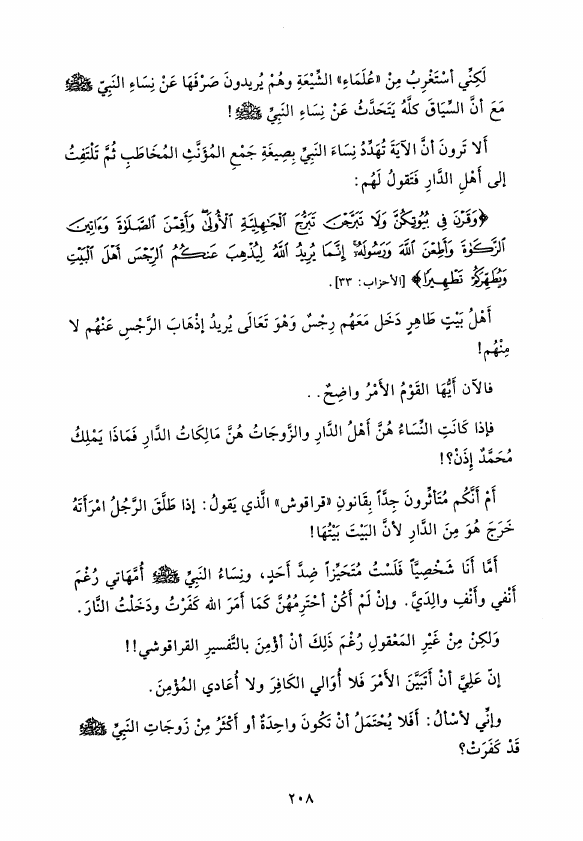 لَكِنِّي أسْتَغْرِبُ مِنْ «عُلَمَاءِ» الشِّيْعَةِ وهُمْ يُريدونَ صَرْفَهَا عَنْ نِسَاءِ النَبِيّ ﷺ
مَعَ أنَّ السِّيَاقَ كلَّهُ يَتَحَدَّثُ عَنْ نِسَاءِ النَبِيِّ ﷺ!
ألَا تَرونَ أنَّ الآيَةَ تُهَدِّدُ نِسَاءَ النَبِيِّ بِصِيغَةِ جَمْعِ المُؤنَّثِ المُخَاطَبِ ثُمَّ تَلْتَفِتُ
إلى أهْلِ الدَّارِ فَتَقُولُ لَهُم:
﴿وَقَرْنَ فِي بُيُوتِكُنَّ وَلَا تَبَرَّجْنَ تَبَرُّجَ الْجَاهِلِيَّةِ الْأُولَىٰ وَأَقِمْنَ الصَّلَوٰةَ وَءَاتِينَ
الزَّكَوٰةَ وَأَطِعْنَ اللَّهَ وَرَسُولَهُ إِنَّمَا يُرِيدُ اللَّهُ لِيُذْهِبَ عَنكُمُ الرِّجْسَ أَهْلَ الْبَيْتِ
وَيُطَهِّرَكُمْ تَطْهِيرًا﴾ [الأحزاب: ٣٣].
أهْلُ بَيْتٍ طَاهِرٍ دَخَلَ مَعَهُم رِجْسٌ وَهْوَ تَعَالَى يُريدُ إذْهَابَ الرَّجْسِ عَنْهُم لا
مِنْهُم!
فالآن أيُّهَا القَوْمُ الأمْرُ واضِحٌ. .
فإذا كَانَتِ النِّسَاءُ هُنَّ أهْلُ الدَّارِ والزَّوجَاتُ هُنَّ مَالِكَاتُ الدَّارِ فَمَاذَا يَمْلِكُ
مُحَمَّدٌ إذَنْ؟!
أمْ أنَّكُم مُتَأثِّرونَ جِدَّاً بِقَانونِ «قراقوش» الَّذي يَقولُ: إذا طَلَّقَ الرَّجُلُ امْرَأتَهُ
خَرَجَ هُوَ مِنَ الدَّارِ لأنَّ البَيْتَ بَيْتُهَا!
أمَّا أنَا شَخْصِيَّاً فَلَسْتُ مُتَحَيِّزاً ضِدَّ أحَدٍ، ونِسَاءُ النَبِيِّ ﷺ أُمَّهَاتي رُغْمَ
أنْفي وأنْفِ والدَيَّ. وإنْ لَمْ أكُنْ أحْتَرِمُهُنَّ كَمَا أمَرَ الله كَفَرْتُ ودَخَلْتُ النَّارَ.
وَلكِنْ مِنْ غَيْرِ المَعْقولِ رُغْمَ ذَلِكَ أنْ أؤْمِنَ بالتَّفسيرِ القراقوشي!!
إنّ عَلَيَّ أنْ أتَبَيَّنَ الأمْرَ فَلا أُوَالي الكَافِرَ ولا أُعَادي المُؤْمِنَ.
وإنِّي لأسْألُ: أفَلا يُحْتَمَلُ أنْ تَكُونَ واحِدَةٌ أو أكْثَرُ مِنْ زَوجَاتِ النَبِيِّ ﷺ
قَدْ كَفَرَتْ؟
٢٠٨